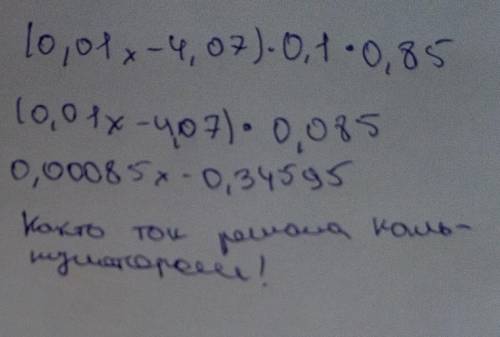 (0,01x-4,07)·0,1·0,85
(0,01x-4,07)· 0,085
0,00085x-0,34595
Както так решала каль-
кулятором!